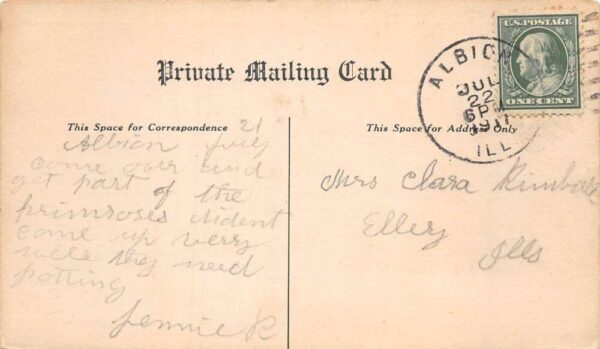 Private Mailing Card
U.S. POSTAGE
ONE CENT
ALBION
JUL
22
6 PM
1911
ILL
This Space for Correspondence
This Space for Address Only
Albion July 21
come over and
get part of the
primroses dident
come up very
nice they need
potting
Jennie R
Mrs Clara
Ellery
Ills